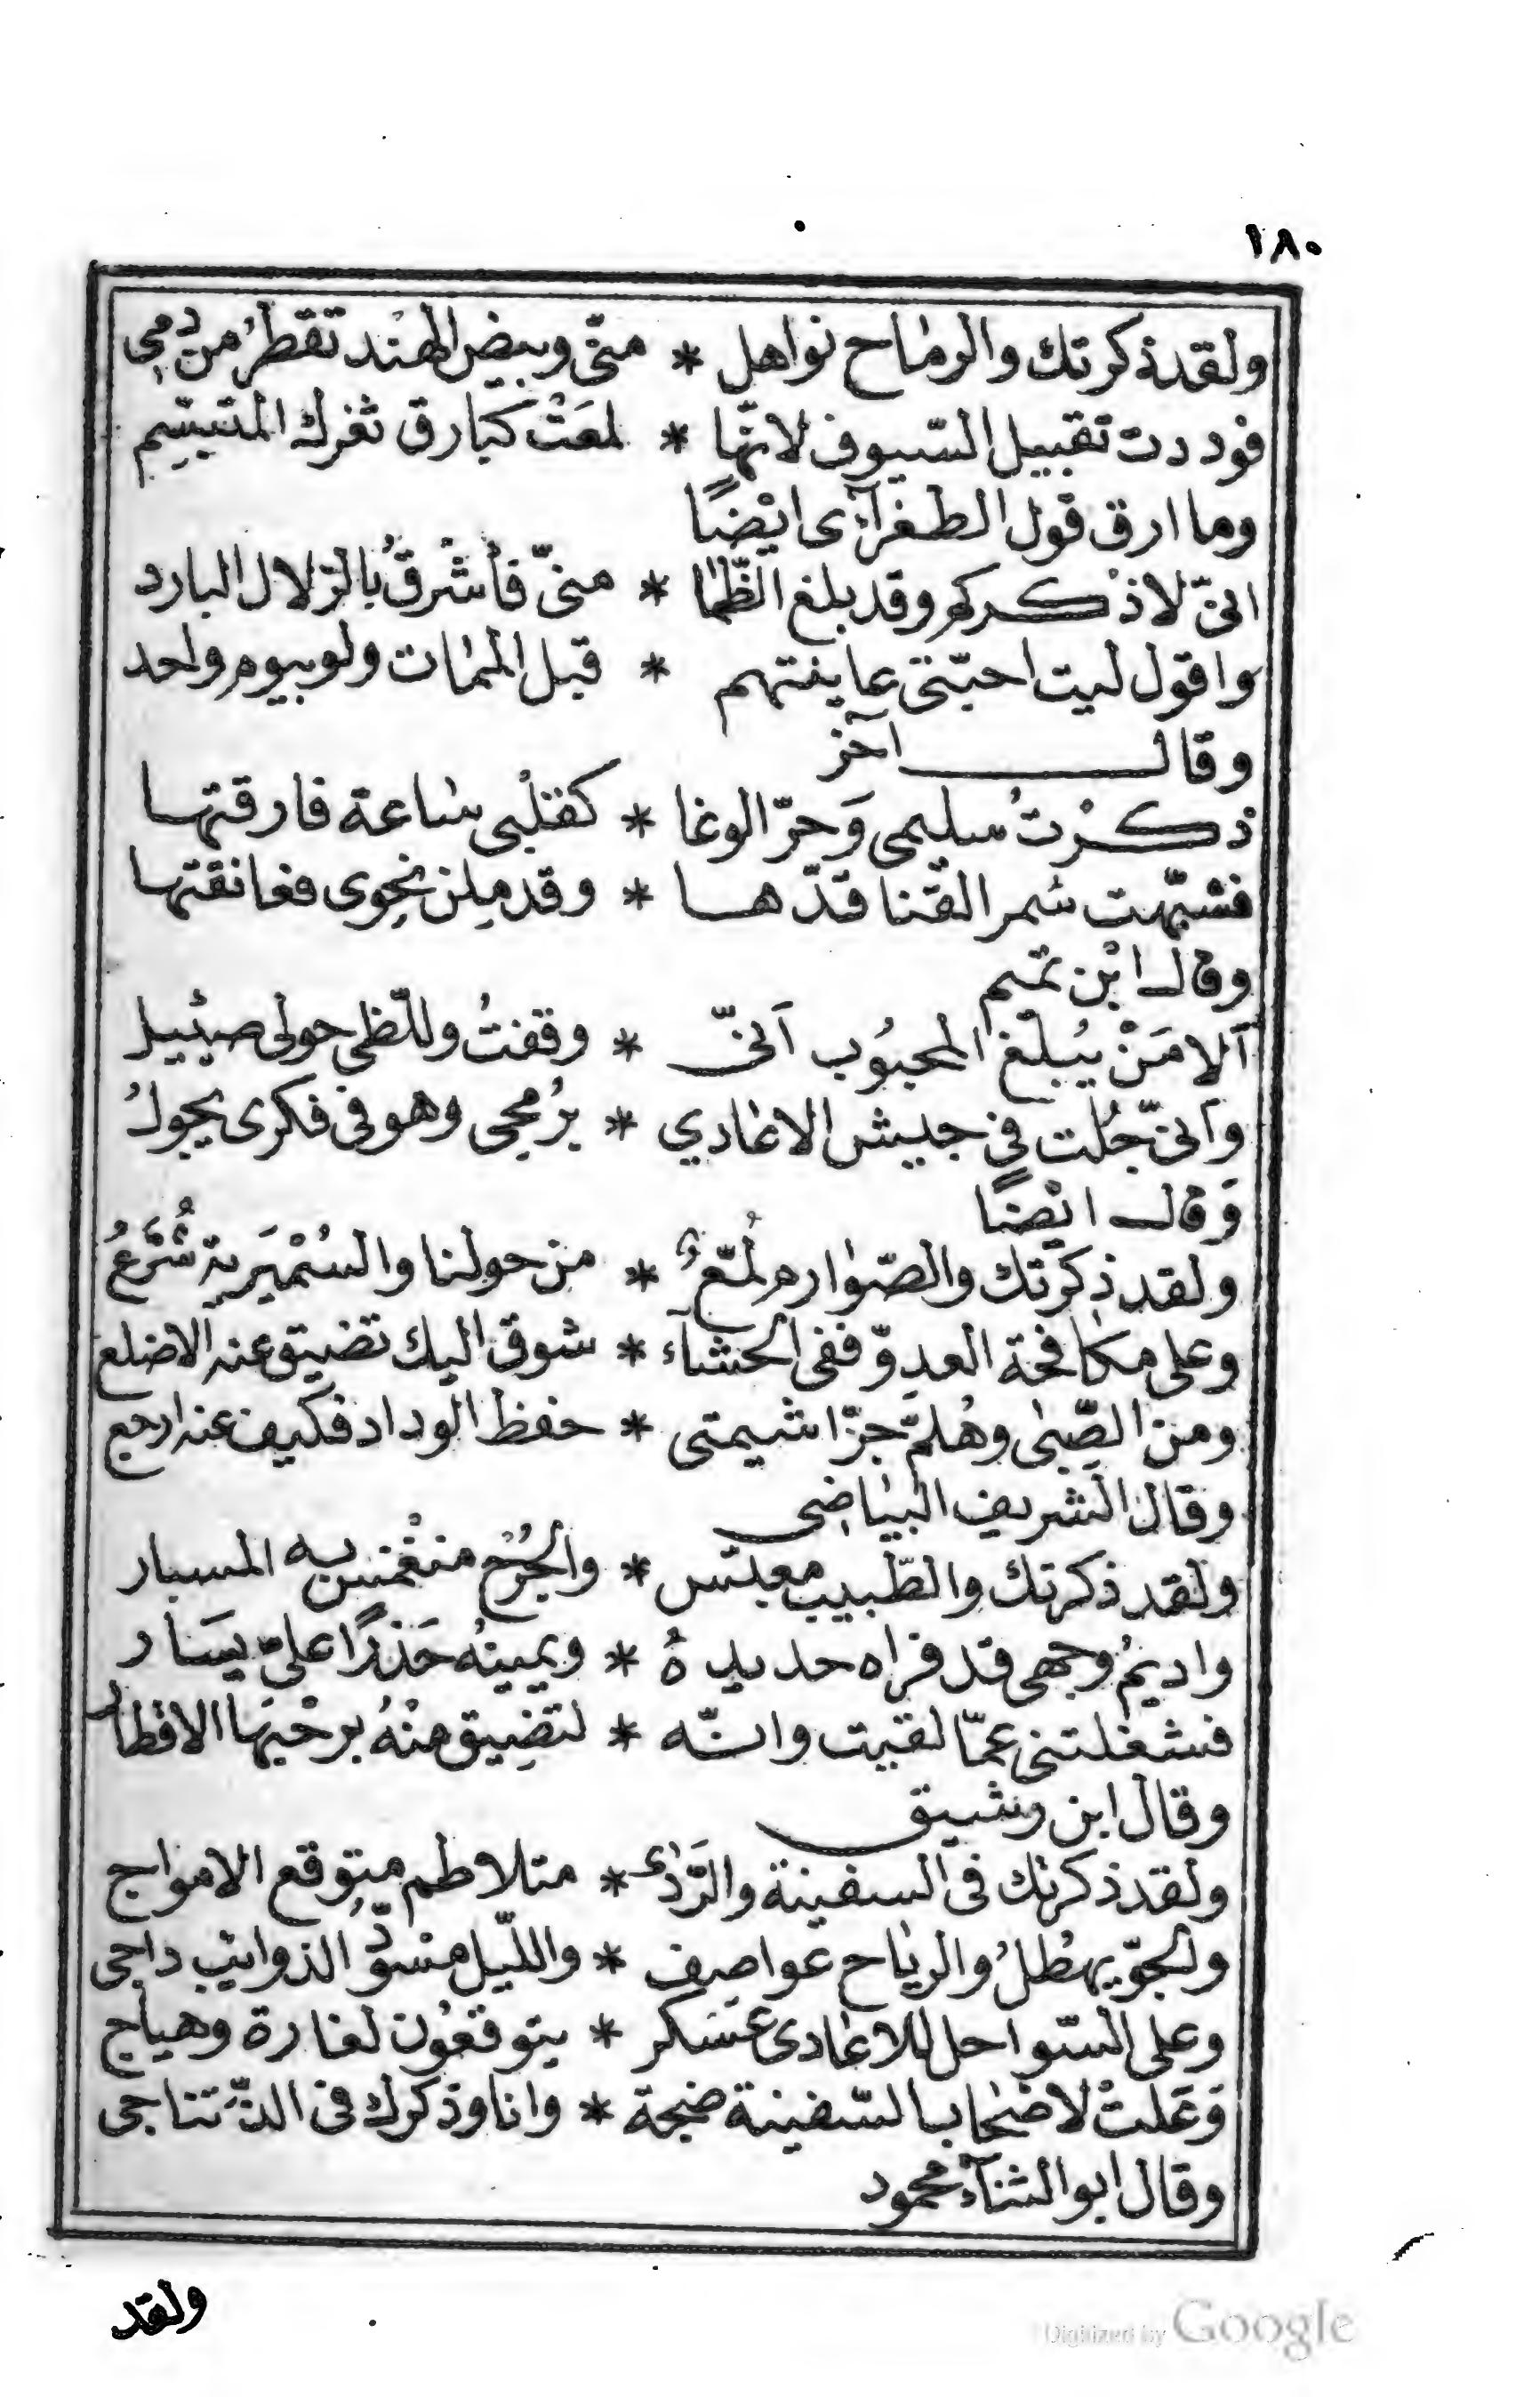 ١٨٠
ولقد ذكرتك والرماح نواهل * منّى وبيض الهند تقطرُ من دمِى
فوددت تقبيل السّيوف لانّها * لمعَتْ كبارق ثغرك المتبسّمِ
وما ارق قول الطغرآئى ايْضًا
انىّ لاذْكركم وقد بلغ الظّمٰا * منىّ فأشرقُ بالزلال البارد
واقول ليت احبّتى عاينتهم * قبل الممٰات ولو بيوم واحد
وقال آخر
ذكرْتُ سليمى وَحرّ الوغا * كقلبى سٰاعة فارقتها
فشبّهت سُمر القنا قدّها * وقد ملن نحِوى فعانقتها
وقال ابْن تميم
اَلا مَنْ يُبلّغ المحبُوب اَنىّ * وقفتُ وللّظى حولى صئيل
واَنىّ جُلت فى جيش الاعٰادي * برُمحِى وهو فى فكرى يجولُ
وَقال ايْضًا
ولقد ذكَرتك والصّوٰارم لُمّعٌ * من حولنا والسُمْيَرية شُرَّعُ
وعلى مكٰافحة العدوّ ففى الحشآء * شوق اليك تضيق عنه الاضلع
ومن الصِّبٰى وهُلمَّ جرّا شيمتى * حفظ الوداد فكيف عنه ارجع
وقال الشريف البيٰاضِى
ولقد ذكرتك والطّبيب معبّس * والجُرْح منغْمس به المسبار
واديمُ وجهى قد فراه حديدهُ * ويمينهُ حَذرًا علىّ يسَار
فشغلتنى عمّا لقيت وانّه * لتضِيق منْهُ برحْبَها الاقطارُ
وقال ابن رشيق
ولقد ذكرتك فى السفينة والرَّدٰى * متلاطم متوقع الامواج
والجوّ يهطُلُ والريٰاح عواصِف * واللّيل مسْوَدُّ الذوائب داجى
وعلى السّواحل للاعٰادى عسَكر * يتوقعُون لغارة وهياج
وَعَلتْ لاصْحٰاب السّفينة ضجة * وانا وذكرك فى الذّ تناجى
وقال ابو الثنآء محمود
ولقد
Digitized by Google